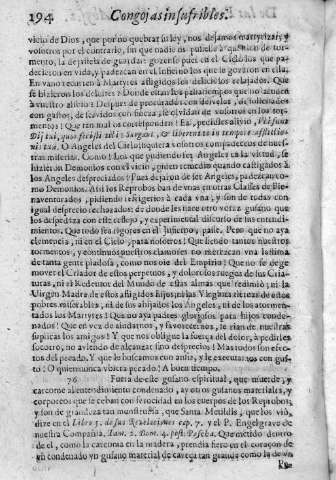 194. Congojas insufribles.
vicio de Dios, que por no quebrar su ley, nos dejamos martyrizar; y
vosotros por el contrario, sin que nadie os pusiesse à question de tor-
mento, la de
decieron en vida, y padezcan en el Infierno los que lo gozaron en ella;
En vano recurren à Martyres afligidos sus desdichados relajados. Que
se hizieron los deleites? Donde estàn los passatiempos que no acuden
à vuestro alivio? Despues de procurados con desvelos, de
con gastos, de servidos con fineza, se olvidan de vosotros en los tor-
mentos? Que tan mal os corresponden? Ea, pedidles alivio, Vbi sunt
Dij tui, quos fecisti tibi? Surgant, & liberent te in tempore afflictio-
nis tuæ. O Angeles del Cielo, siquiera vosotros compadeceos de nues-
tras miserias. Como? Los que pudiendo ser Angeles en la virtud, se
hizieron Demonios con el vicio, piden remedio quando castigados à
los Angeles despreciados? Pues dejaron de ser Angeles, padezcan co-
mo Demonios. Assi los Reprobos van de vnas en otras Classes de Bie-
naventurados, pidiendo refrigerios à cada vna; y son de todas con
igual desprecio rechazados: de donde les nace otro voraz gusano, que
los despedaza con este despejo, y experimental discurso de sus entendi-
mientos. Que todo sea rigores en el Infierno, passe. Pero que no aya
clemencia, ni en el Cielo, para nosotros! Que siendo tantos nuestros
tormentos, y continuos nuestros clamores no merezcan vna lastima
de tanta gente piadosa, como mora en el Empireo! Que no se dege
mover el Criador de estos perpetuos, y dolorosos ruegos de sus Cria-
turas, ni el Redentor del Mundo de estas almas que redimiò; ni la
Virgen Madre de estos afligidos hijos; ni las Virgines
pobres miserables, ni de sus ahijados los Angeles, ni de los atormen-
tados los Martyres! Que no aya padres gloriosos para hijos conde-
nados! Que en vez de ayudarnos, y favorecernos, se rian de nuestras
suplicas los amigos! Y que nos obligue la fuerza del dolor, à pedirles
socorro, no aviendo de alcanzar sino desprecios! Mas todos son efec-
tos del pecado. Y que le buscamos con ansia, y le executamos con gus-
to! O quien nunca viera pecado! A buen tiempo.
76 Fuera de este gusano espiritual, que muerde, y
carcome al entendimiento condenado, ay otros gusanos materiales, y
corporeos que se ceban con ferocidad en los cuerpos de los Reprobos,
y son de grandeza tan monstruosa, que Santa Metildis, que los viò,
dize en el Libro 5. de sus Revelaciones cap. 7. y el P. Engelgrave de
nuestra Compañia, Tom. 2. Dom. 4. post. Pascha. Que metido dentro
de el, como la carcoma en la madera, prendia fiero en el corazon de
vn condenado vn gusano material de cabeza tan grande como la de vn